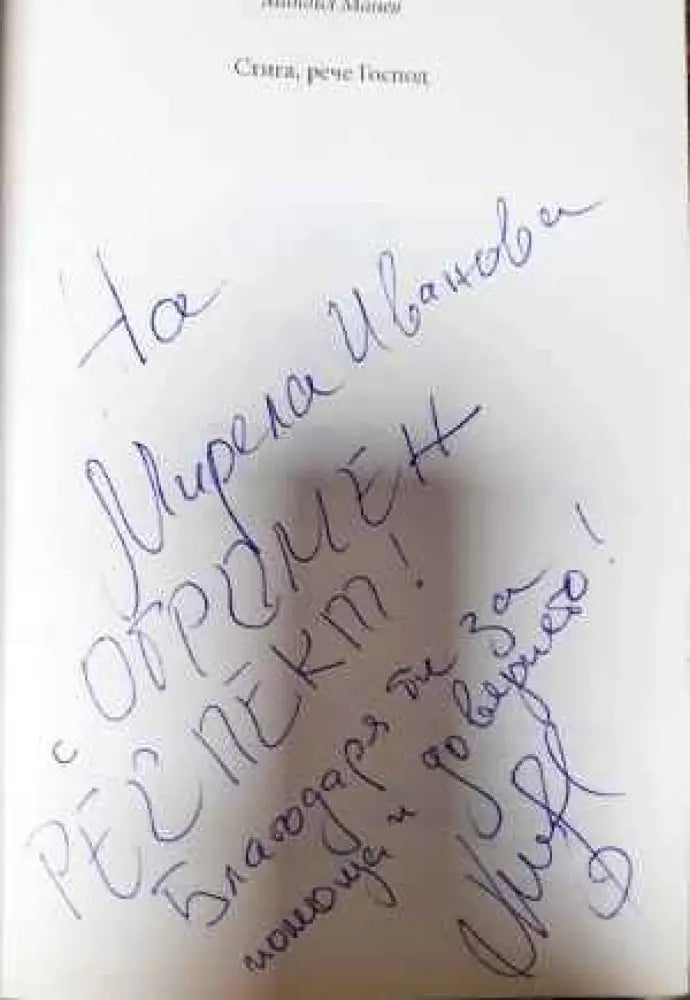 Стига, рече Господ
На
Мирела Иванова
с ОГРОМЕН
РЕСПЕКТ!
Благодаря ти за
помощта и доверието!